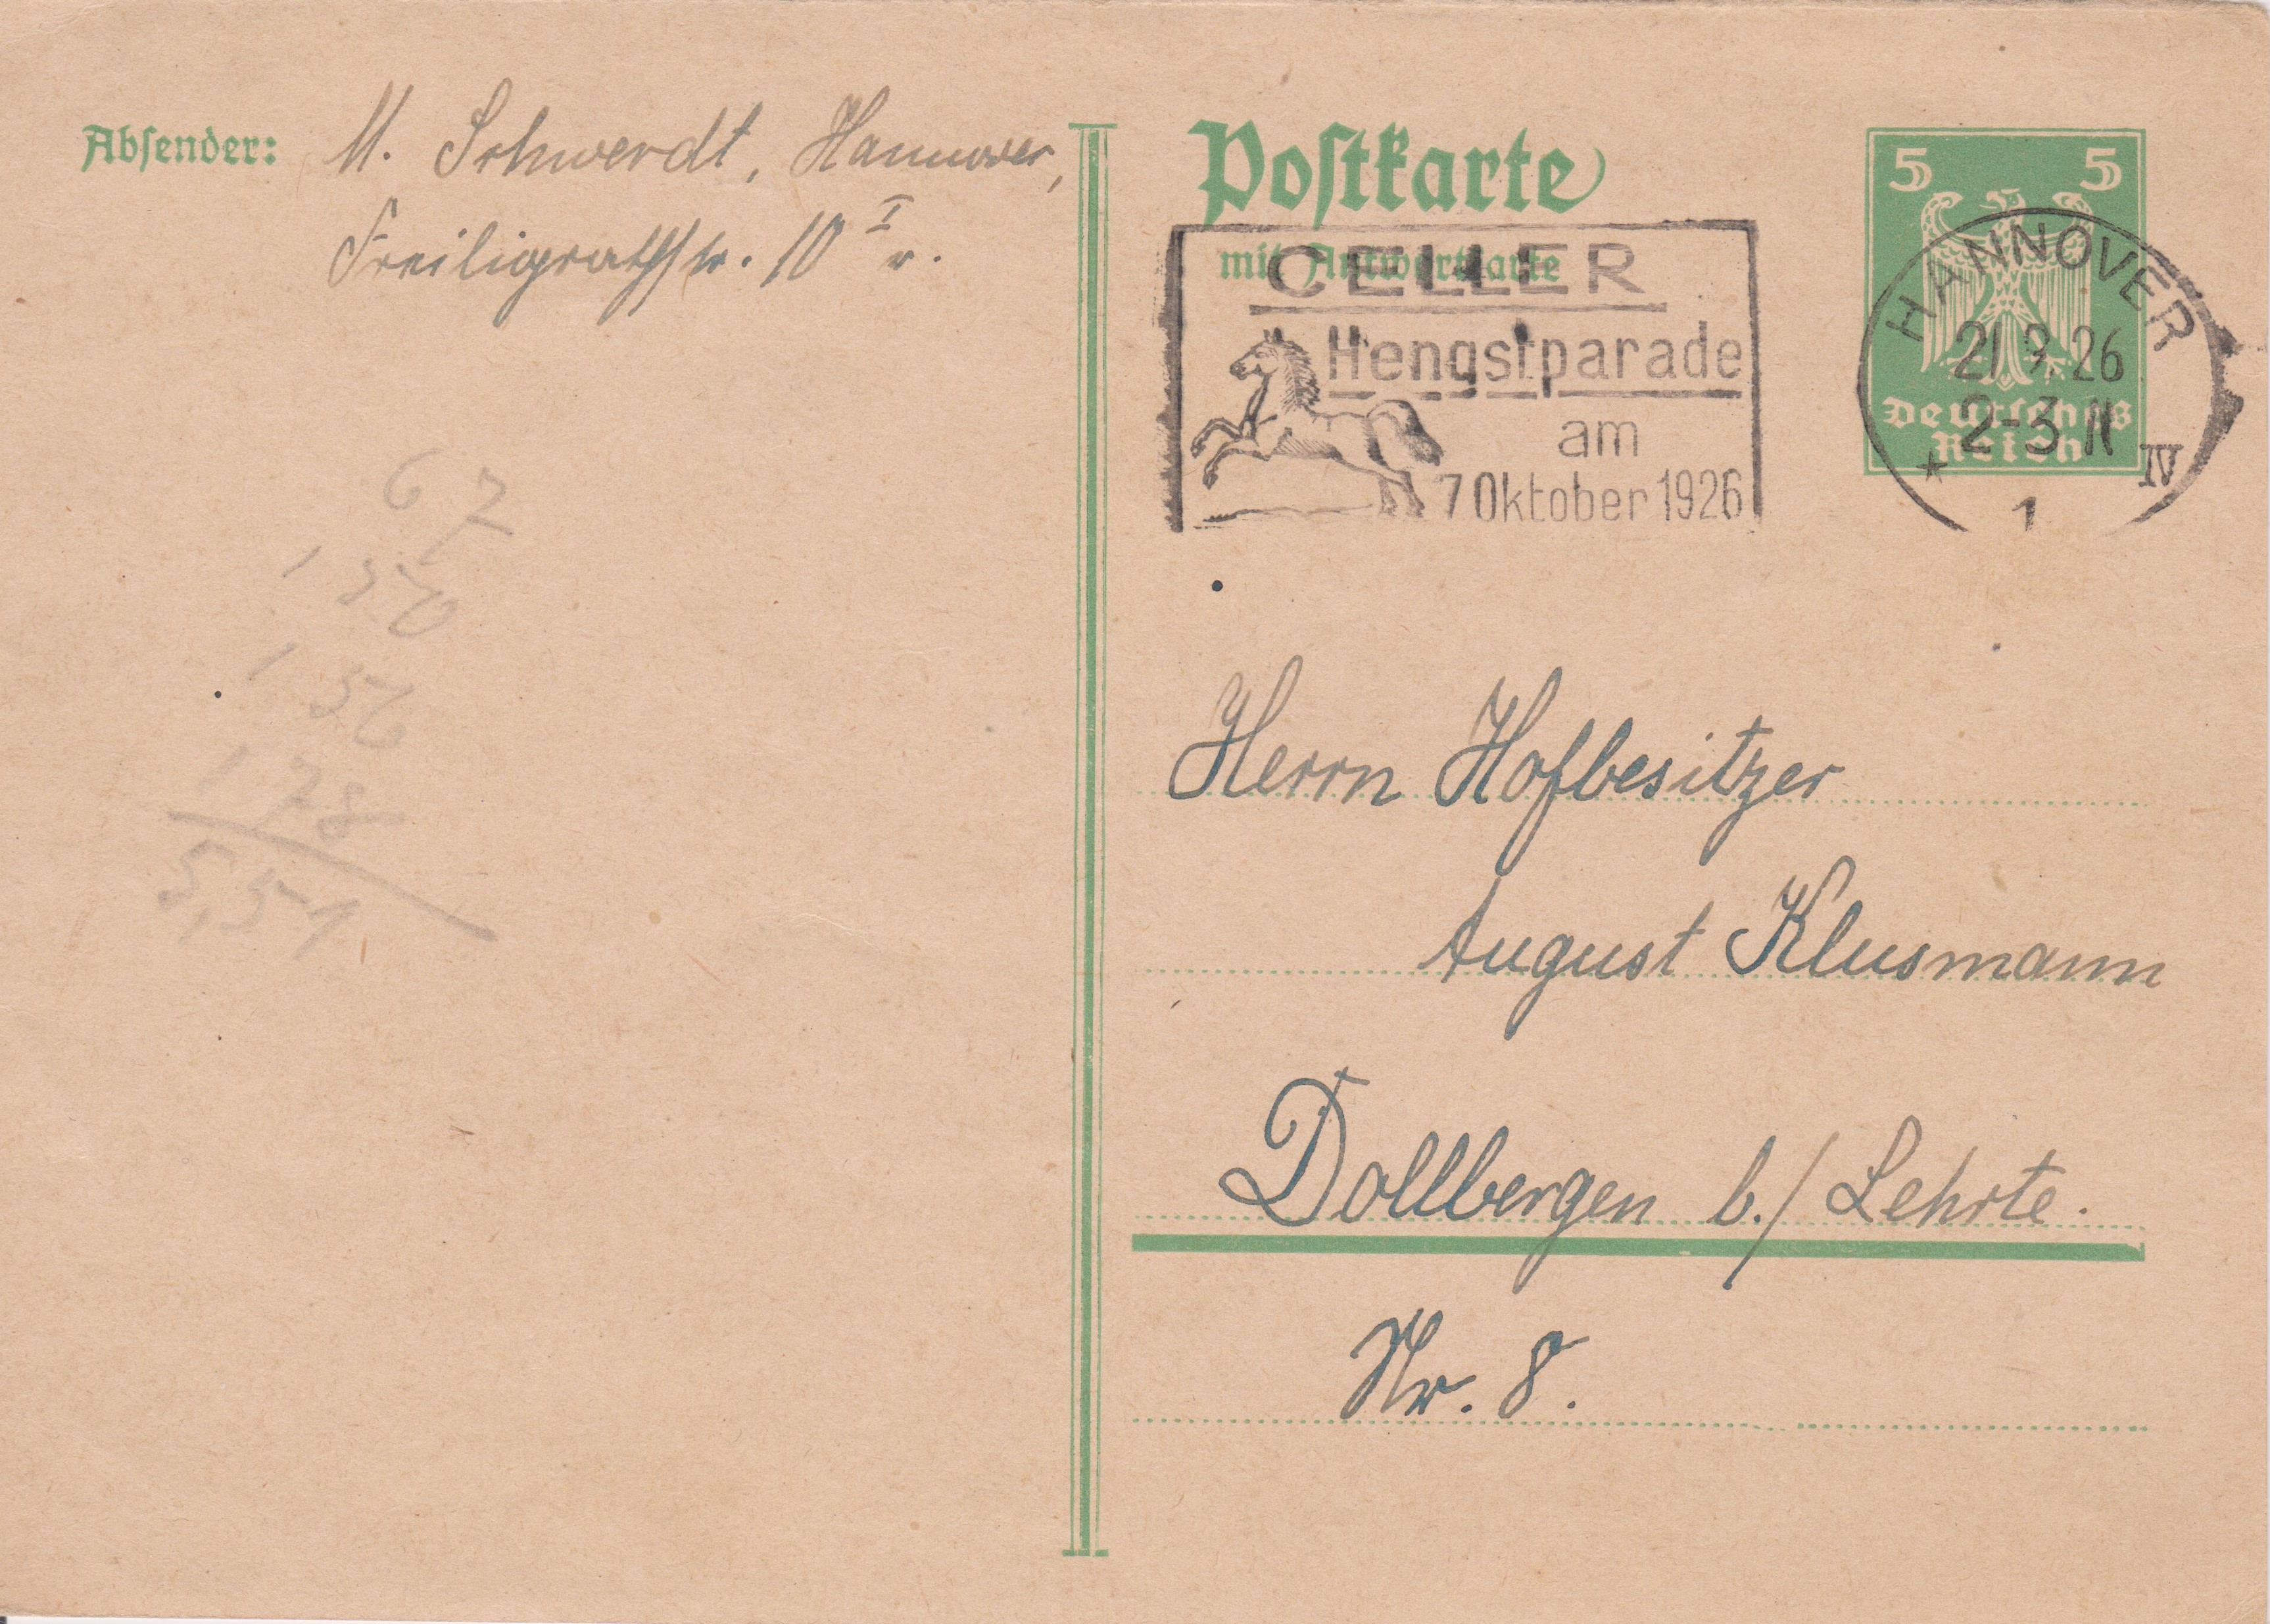 Absender: M. Schwerdt, Hannover,
Freiligrathstr. 10 I r.
Postkarte
mit Antwortkarte
CELLER
Hengstparade
am
7 Oktober 1926
5 5
Deutsches
Reich
HANNOVER
21.9.26
2-3 N
* 1 IV
67
1 50
1 56
1 78
5,51
Herrn Hofbesitzer
August Klusmann
Dollbergen b./Lehrte.
Nr. 8.